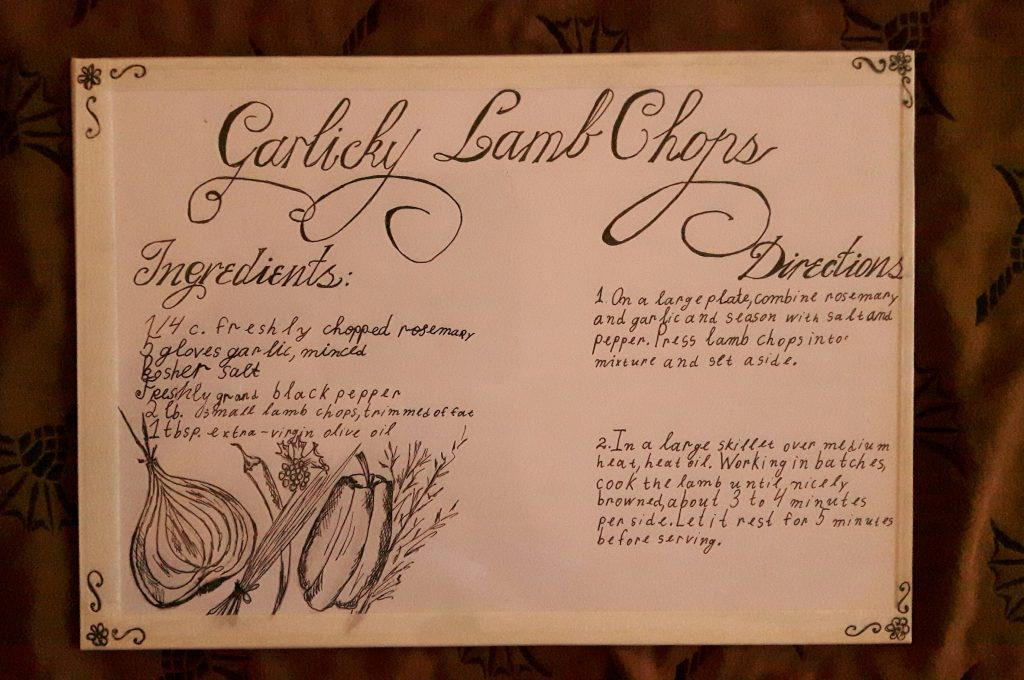 Garlicky Lamb Chops
Ingredients:
1/4 c. freshly chopped rosemary
3 gloves garlic, minced
kosher salt
freshly grand black pepper
2 lb. small lamb chops, trimmed of fat
1 tbsp. extra-virgin olive oil
Directions
1. On a large plate, combine rosemary
and garlic and season with salt and
pepper. Press lamb chops into
mixture and set aside.
2. In a large skillet over medium
heat, heat oil. Working in batches,
cook the lamb until, nicely
browned, about 3 to 4 minutes
per side. Let it rest for 5 minutes
before serving.